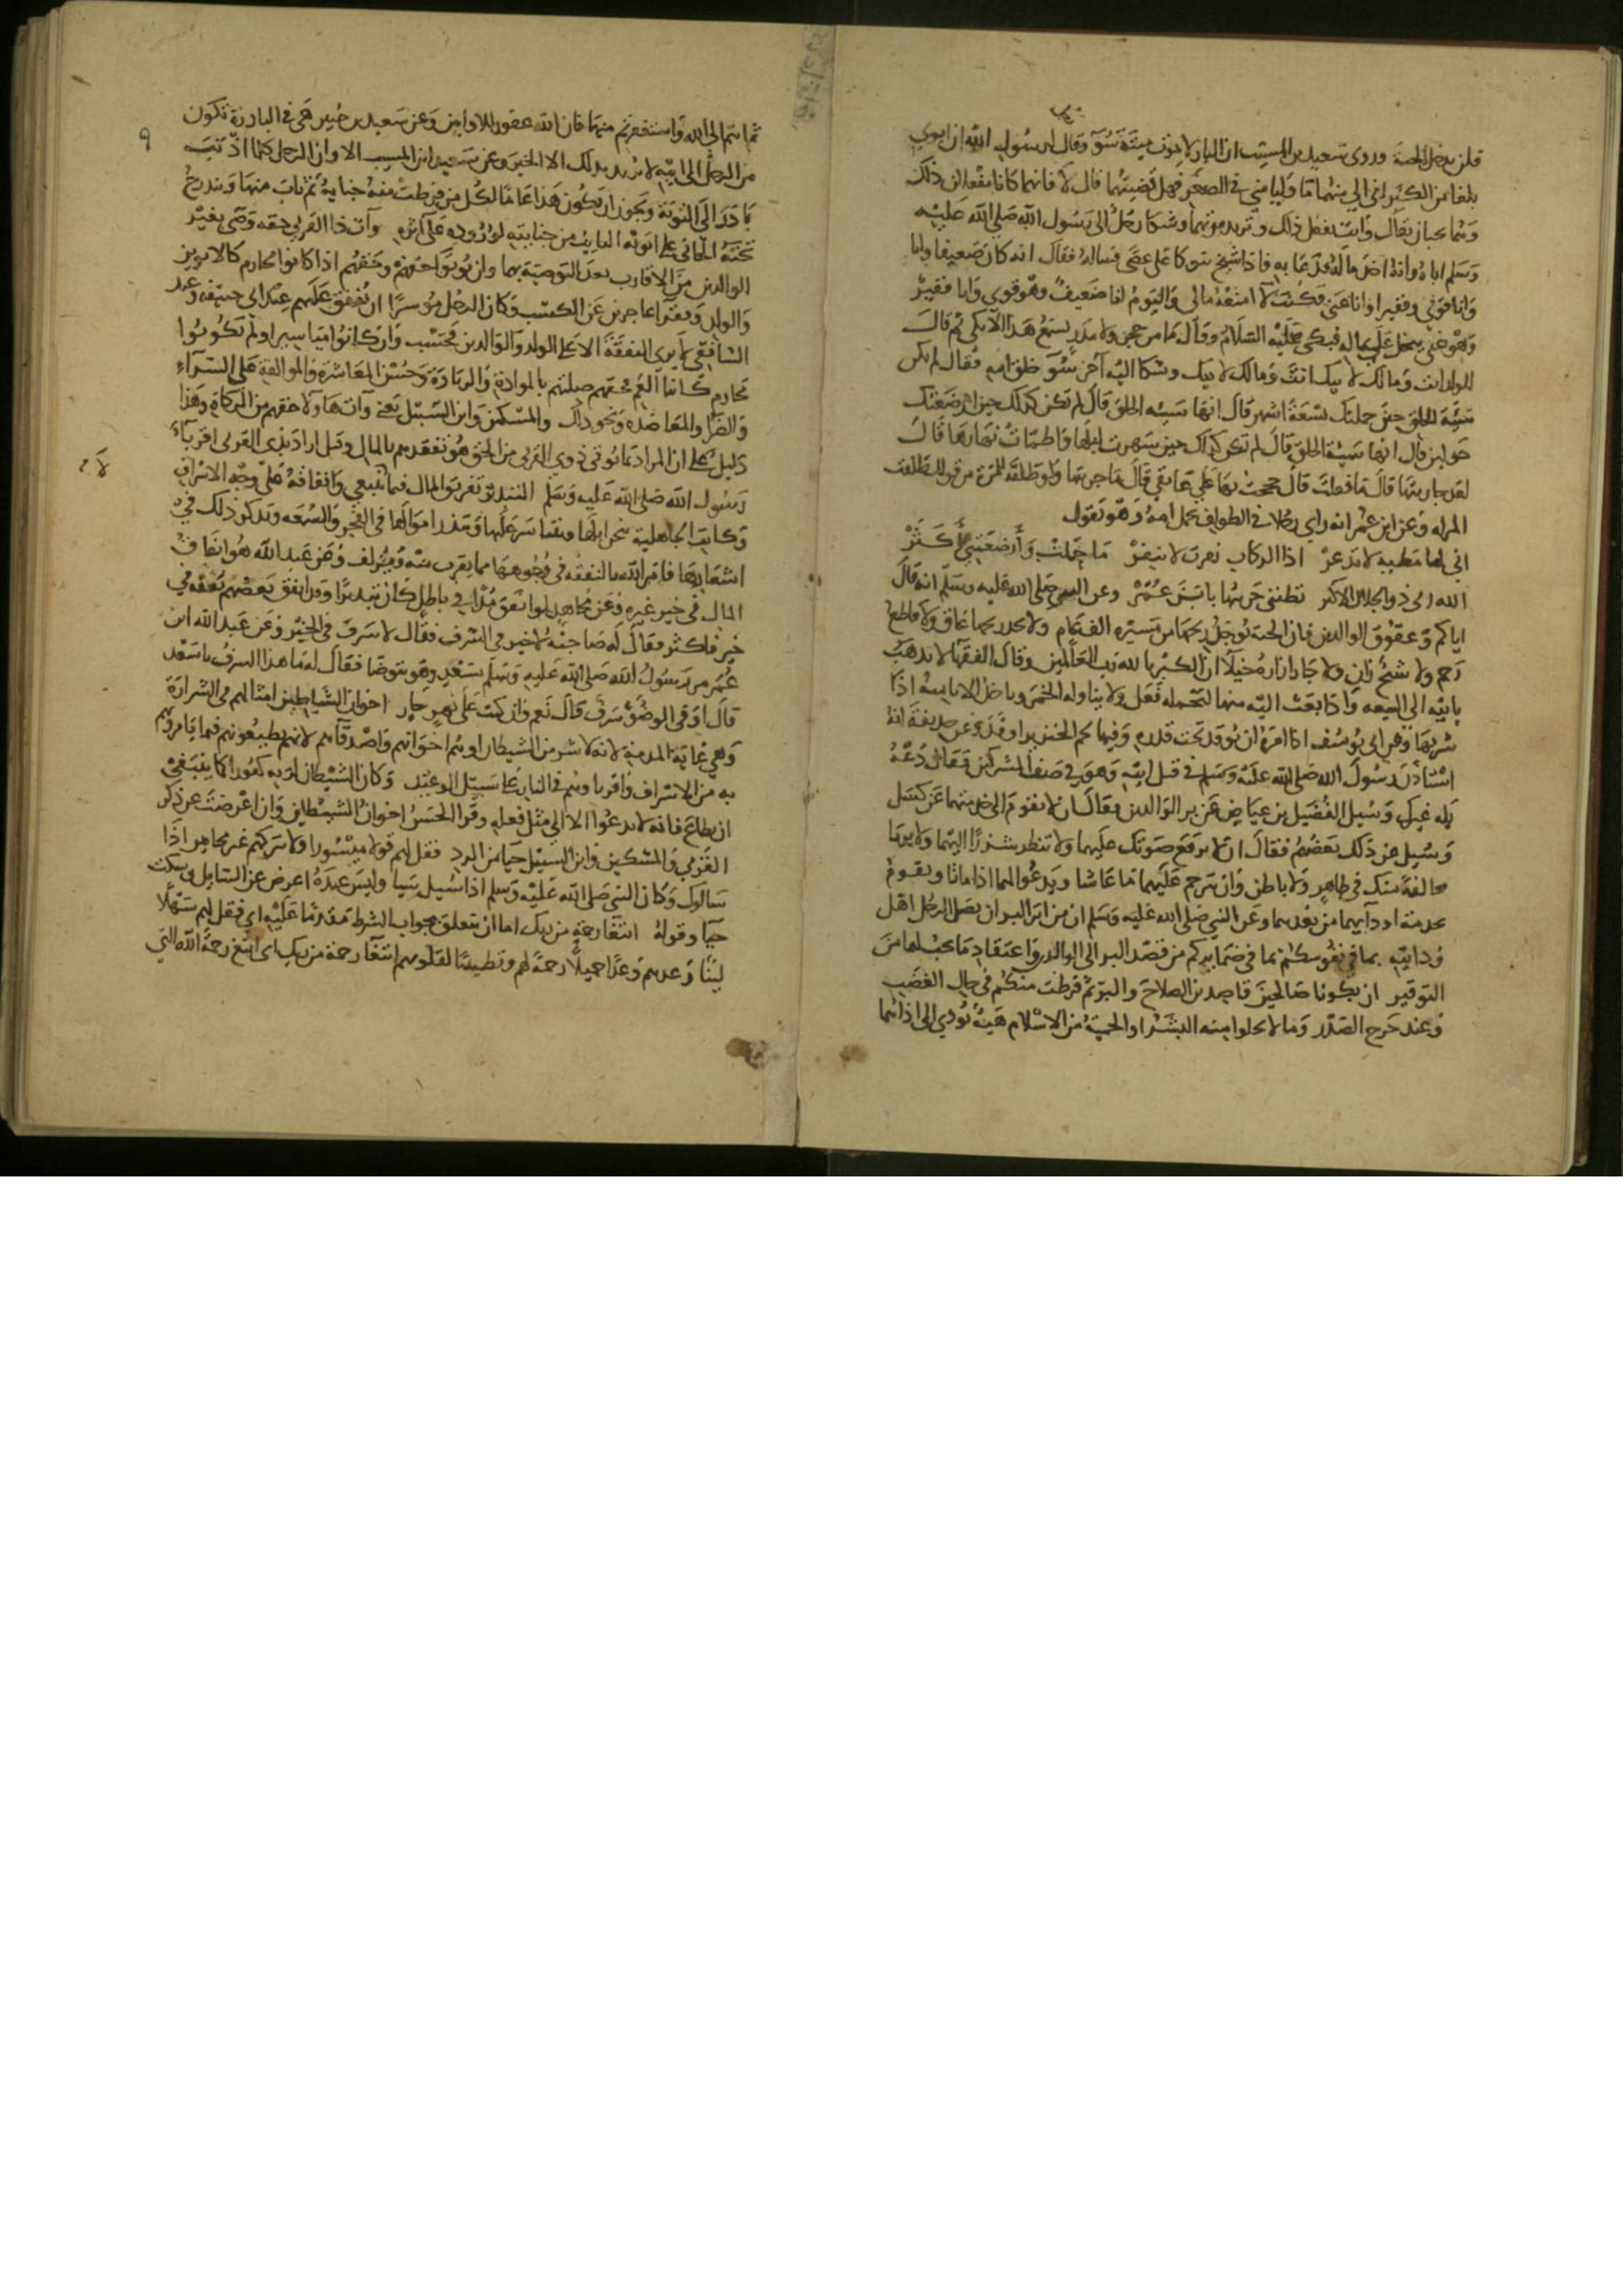 فلن يدخل الجنة وروى سعيد بن المسيب ان البار لا يموت ميتة سوء وقال لرسول الله ان ابوي
بلغا من الكبر اني الي منهما ما وليا مني في الصغر فهل قضيتهما قال لا فانهما كانا يفعلان ذلك
وهما يحبان بقاك وانت تفعل ذلك وتريد موتهما وشكا رجل الى رسول الله صلى الله عليه
وسلم اباه وانه اخذ ماله فدعا به فاذا شيخ يتوكا على عصى فساله فقال انه كان ضعيفا وانا
وانا قوي وفقيرا وانا غني فكنت لا امنعه مالي واليوم انا ضعيف وهو قوي وانا فقير
وهو غني يبخل علي بماله فبكى عليه السلام وقال ما من حجر ولا مدر يسمع هذا الا بكى ثم قال
للولد انت ومالك لابيك انت ومالك لابيك وشكا اليه آخر سوء خلق امه فقال لم تكن
سيئة الخلق حين حملتك تسعة اشهر قال انها سيئه الخلق قال لم تكن كذلك حين ارضعتك
حولين قال انها سيئة الخلق قال لم تكن كذلك حين سهرت ليلها واظمات نهارها قال
لقد جازيتها قال ما فعلت قال حججت بها على عاتقي قال ما جزيتها ولو طلقة
وعن ابن عمر انه راى رجلا في الطواف يحمل امه وهو يقول
اني لها مطية لا تذعر اذا الركاب نفرت لا تنفر ما حملت وأرضعتني أكثر
الله ربي ذو الجلال الاكبر تظنني جزيتها يا بن عمر وعن النبي صلى الله عليه وسلم انه قال
اياكم وعقوق الوالدين فان الجنة يوجد ريحها من مسيرة الف عام ولا يجد ريحها عاق ولا قاطع
رحم ولا شيخ زان ولا جار ازاره خيلآ ان الكبريا لله رب العالمين وقال الفقها لا يذهب
بابيه الى البيعه واذا بعث اليه منها ليحمله فعل ولا يناوله الخمر وياخذ الانا منه اذا
شربها وعن ابي يوسف اذا امره ان يوقد تحت قدره وفيها لحم الخنزير اوقد وعن حذيفة انه
استاذن رسول الله صلى الله عليه وسلم في قتل ابيه وهو في صف المشركين فقال دعه
يله غيرك وسيل الفضيل بن عياض عن بر الوالدين فقال ان لا تقوم الى خدمتهما عن كسل
وسيل عن ذلك بعضهم فقال ان لا ترفع صوتك عليهما ولا تنظر شزرا اليهما ولا يريا
مخالفة منك في ظاهر ولا باطن وان ترحم عليهما ما عاشا ويدعو لهما اذا ماتا ويقوم
بخدمة اودآيهما من بعدهما وعن النبي صلى الله عليه وسلم ان من ابر البر ان يصل الرجل اهل
ود ابيه بما في نفوسكم بما في ضمايركم من قصد البر الى الوالدين واعتقاد ما يجب لهما من
التوقير ان تكونا صالحين قاصدين الصلاح والبر ثم فرطت منكم في حال الغضب
وعند حرج الصدر وما لا يخلوا منه البشر او لحمية الاسلام هنة تودي الى اذاهما
٩
ثم انبتم الى الله واستغفرتم منها فان الله غفور للاوابين وعن سعيد بن جبير هي في البادرة تكون
من الرجل الى ابيه لا يريد بذلك الا الخير وعن سعيد ابن المسيب الاواب الرجل كلما اذنب
بادر الى التوبة ويجوز ان يكون هذا عاما لكل من فرطت منه جناية ثم تاب منها ويندرج
تحته الجاني على ابويه التايب من جنايته لوروده على اثره وآت ذا القربى حقه وصى بغير
الوالدين من الاقارب بعد التوصية بهما وان يوتوا حقهم وحقهم اذا كانوا محارم كالابوين
والولد وفقرآ عاجزين عن الكسب وكان الرجل موسرا ان ينفق عليهم عند ابي حنيفة وعند
الشافعي لا يرى النفقة الا على الولد والوالدين فحسب وان كانوا مياسير او لم يكونوا
محارم كابنا العم فحقهم صلتهم بالموادة والزيارة وحسن المعاشرة والموالفة على السرآء
والضرآ والمعاضدة ونحو ذلك والمسكين وابن السبيل يعني وآت هاولا حقهم من الزكاة وهذا
دليل على ان المراد بما يوتى ذوي القربى من الحق هو تعهدهم بالمال وقيل اراد بذي القربى اقربآء
رسول الله صلى الله عليه وسلم التبذير تفريق المال فيما لا ينبغي وانفاقه على وجه الاسراف
وكانت الجاهلية تنحر ابلها وتتياسر عليها وتبذر اموالها في الفخر والسمعه وتذكر ذلك في
اشعارها فامر الله بالنفقه في وجوهها مما يقرب منه ويزلف وعن عبد الله هو انفاق
المال في غير حقه وعن مجاهد لو انفق مدا في باطل كان تبذيرا وقد انفق بعضهم نفقه في
خير فاكثر فقال له صاحبه لا خير في السرف فقال لا سرف في الخير وعن عبد الله ابن
عمر مر رسول الله صلى الله عليه وسلم بسعد وهو يتوضا فقال له ما هذا السرف يا سعد
قال اوفي الوضوء سرف قال نعم وان كنت على نهر جار اخوان الشياطين امثالهم في الشرارة
وهي غاية المذمة لانه لا شر من الشيطان او هم اخوانهم واصدقآهم لانهم يطيعونهم فيما يامرونهم
به من الاسراف او هم قرناوهم في النار على سبيل الوعيد وكان الشيطان لربه كفورا فما ينبغي
ان يطاع فانه لا يدعوا الا الى مثل فعله وقرا الحسن اخوان الشيطان وان اعرضت عن ذي
القربى والمسكين وابن السبيل حيآ من الرد فقل لهم قولا ميسورا ولا تتركهم غير مجابين اذا
سالوك وكان النبي صلى الله عليه وسلم اذا سيل شيا وليس عنده اعرض عن السايل وسكت
حيآ وقوله ابتغآ رحمة من ربك اما ان يتعلق بجواب الشرط مقدما عليه اي فقل لهم سهلا
لينا وعدهم وعدا جميلا رحمة لهم وتطييبا لقلوبهم ابتغآ رحمة من ربك اي ابتغ رحمة الله التي
لا